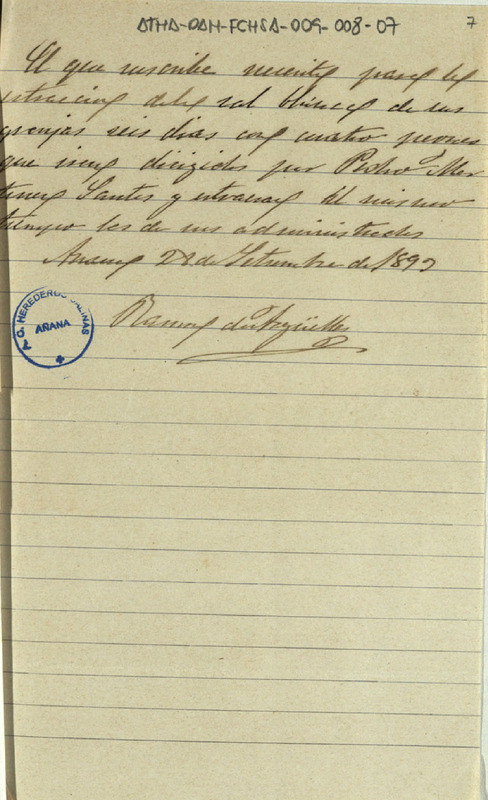 ATHA-DAH-FCHSA-009-008-07
7
El que suscribe necesita para la
estraccion de la sal blanca de sus
granjas seis dias con cuatro peones
que iran dirigidos por Pedro Mar
tinez Santos y estraeran al mismo
tiempo las de sus administrados
Anana 28 de Setiembre de 1897
Ramon de Arguelles
P. O. HEREDEROS SALINAS
AÑANA